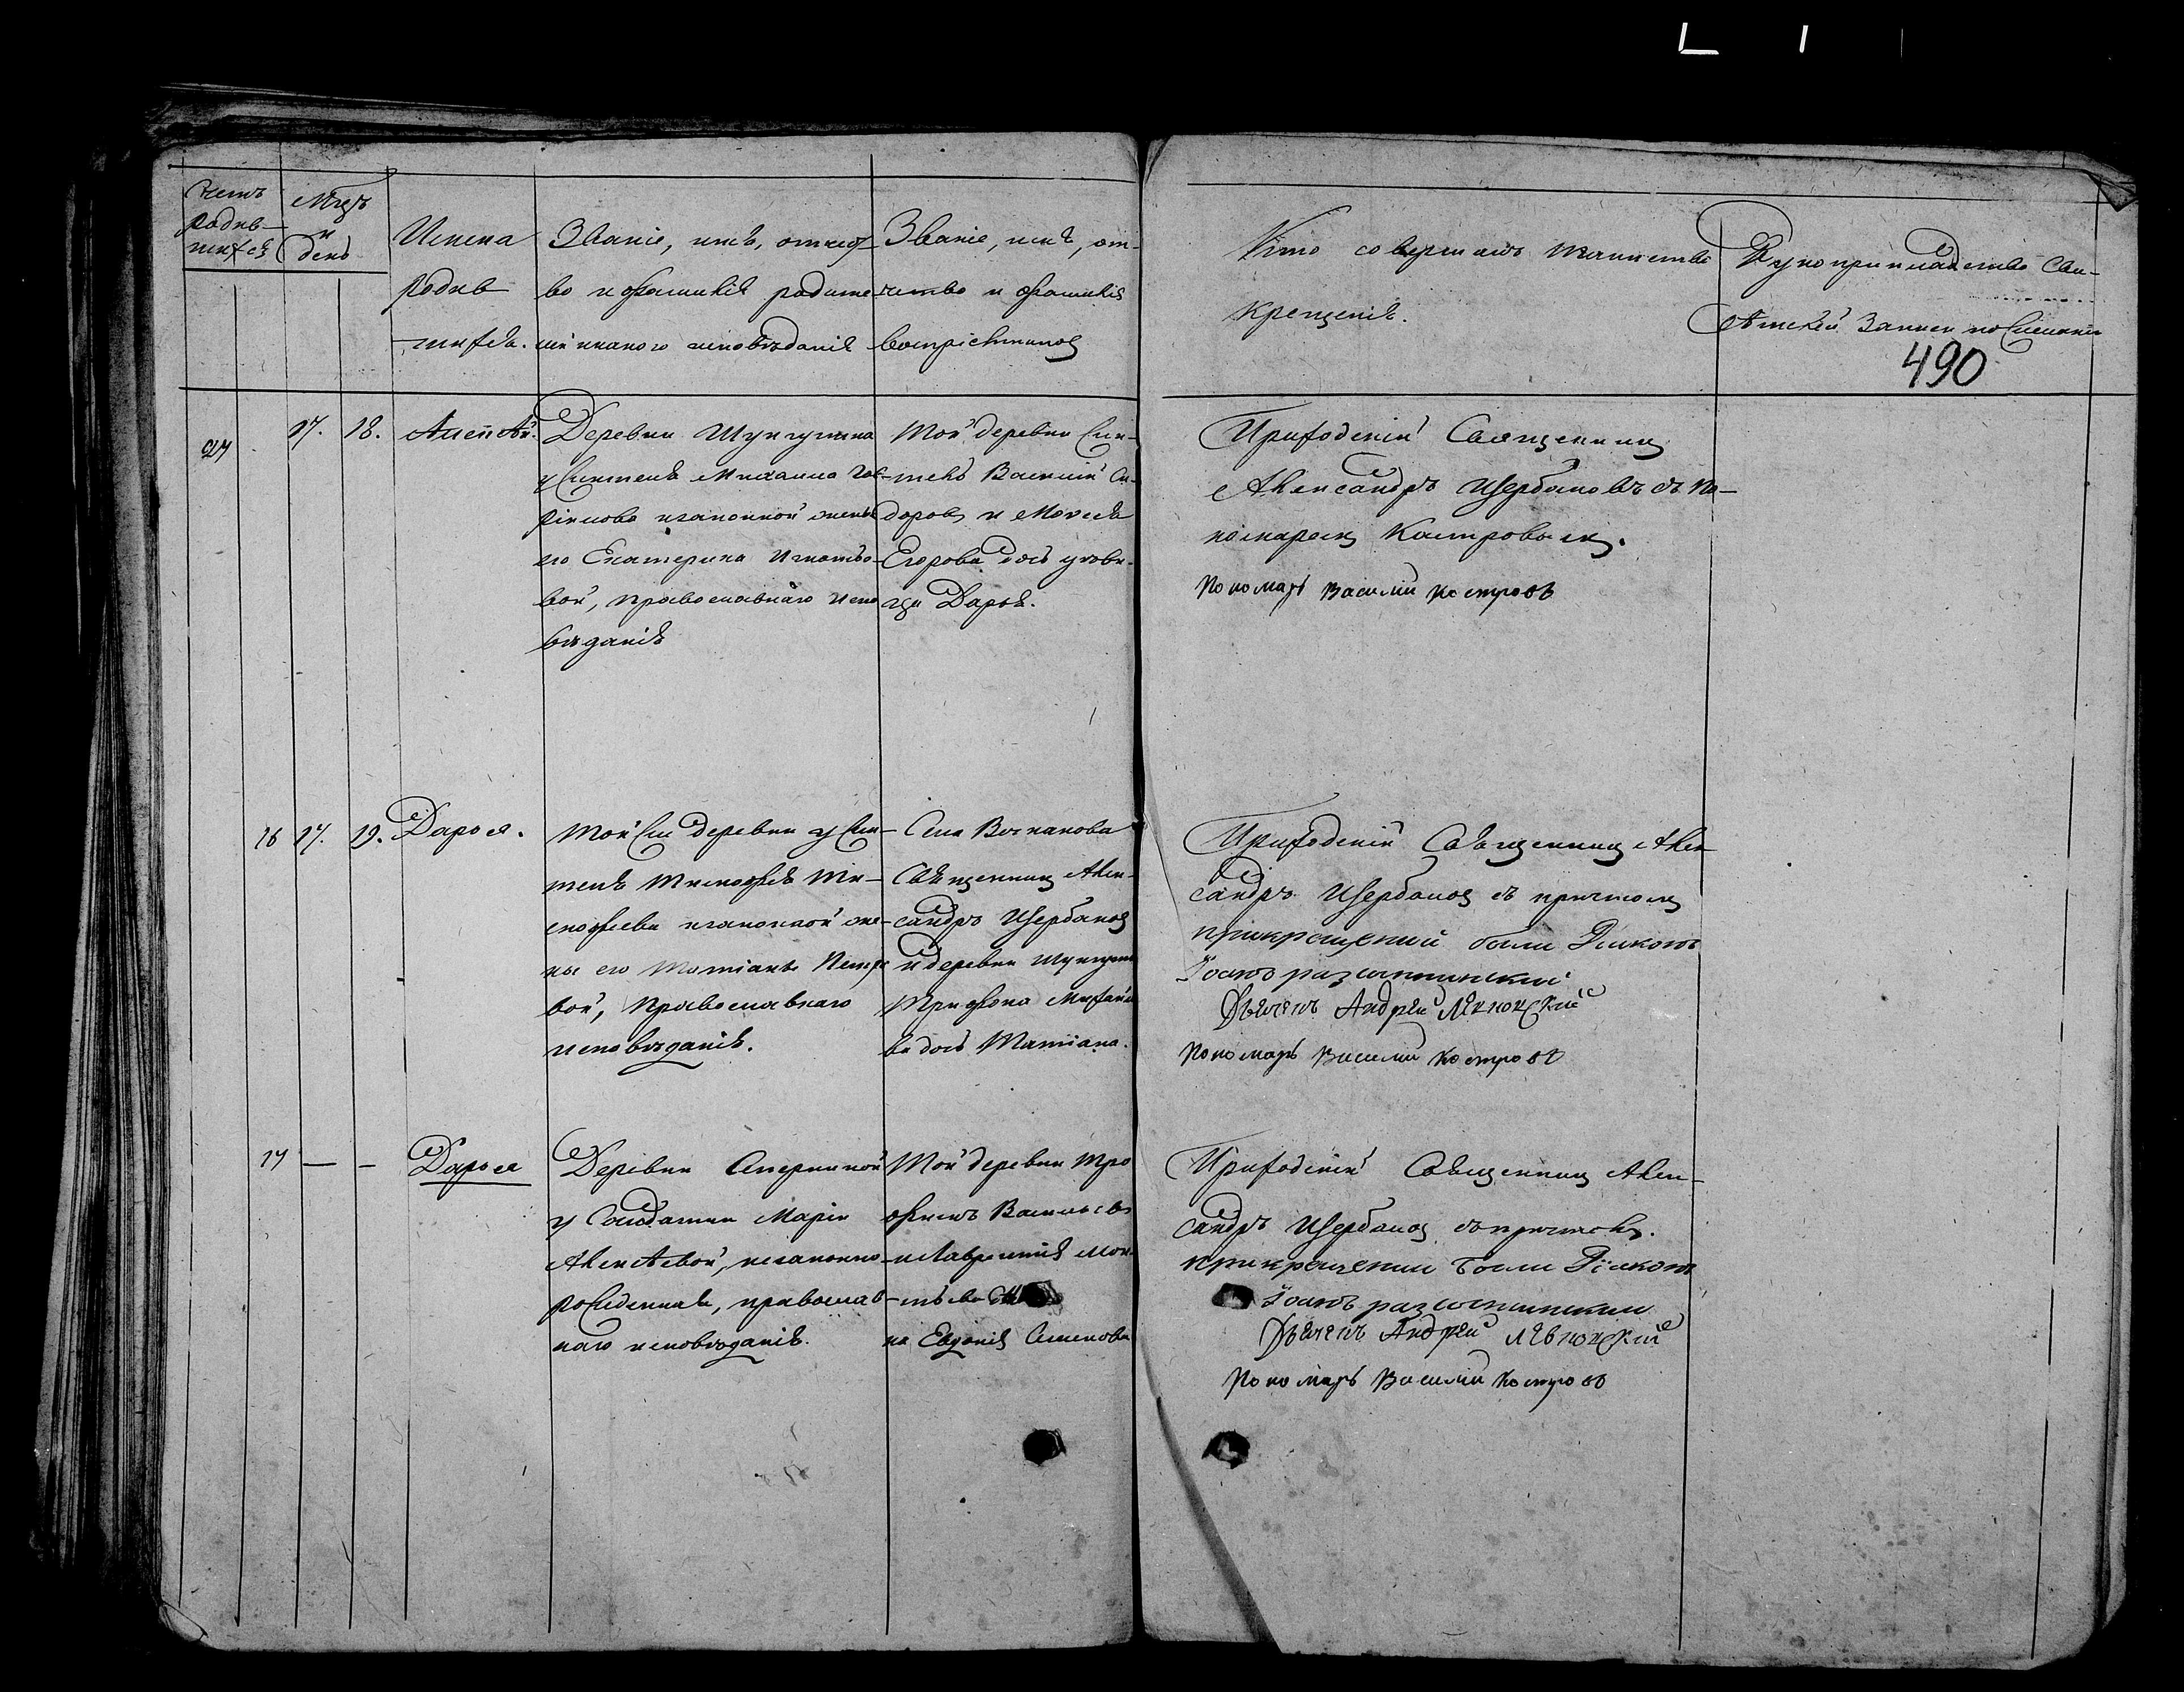 Счетъ
родив-
шихся
Мцъ
и
день
Имена
родив
шихся.
Званіе, имя, отчест
во и фамилія родите
лей и какого исповѣданія
Званіе, имя, от-
чество и фамилія
воспріемниковъ
Кто совершалъ таинство
крещенія.
Рукоприкладство сви-
дѣтелей записи по желанію
490
27
17.
18.
Алексѣй.
Деревни
у жителя Михаила
и законной жены
его Екатерины Игнатье-
вой, православнаго испо
вѣданія
Той деревни жи-
тель Василій Си-
доровъ и Моисея
Егорова дочь
Дарья.
Приходскій Священникъ
Александръ Щербаковъ съ по-
номаремъ Костровымъ.
Пономарь Василій Костровъ
16
17.
19.
Дарья.
Той же деревни у жи-
теля Тимофея Ти-
мофеева и законной же-
ны его Татіаны Петро
вой, православнаго
исповѣданія.
Села
Священникъ Алек-
сандръ Щербаковъ
и деревни
Трифона Михайло
ва дочь Татіана.
Приходскій Священникъ Алек-
сандръ Щербаковъ съ причтомъ
при крещеніи были Діаконъ
Іоаннъ
Дьячекъ Андрей
Пономарь Василій Костровъ
17
—
—
Дарья
Деревни
у Солдатки Маріи
Алексѣевой, незаконно
рожденная, православ
наго исповѣданія.
Той деревни Тро
фимъ Васильевъ
и Лаврентія
на Евдокія Семенова
Приходскій Священникъ Алек-
сандръ Щербаковъ съ причтомъ.
при крещеніи были Діаконъ
Іоаннъ
Дьячекъ Андрей
Пономарь Василій Костровъ